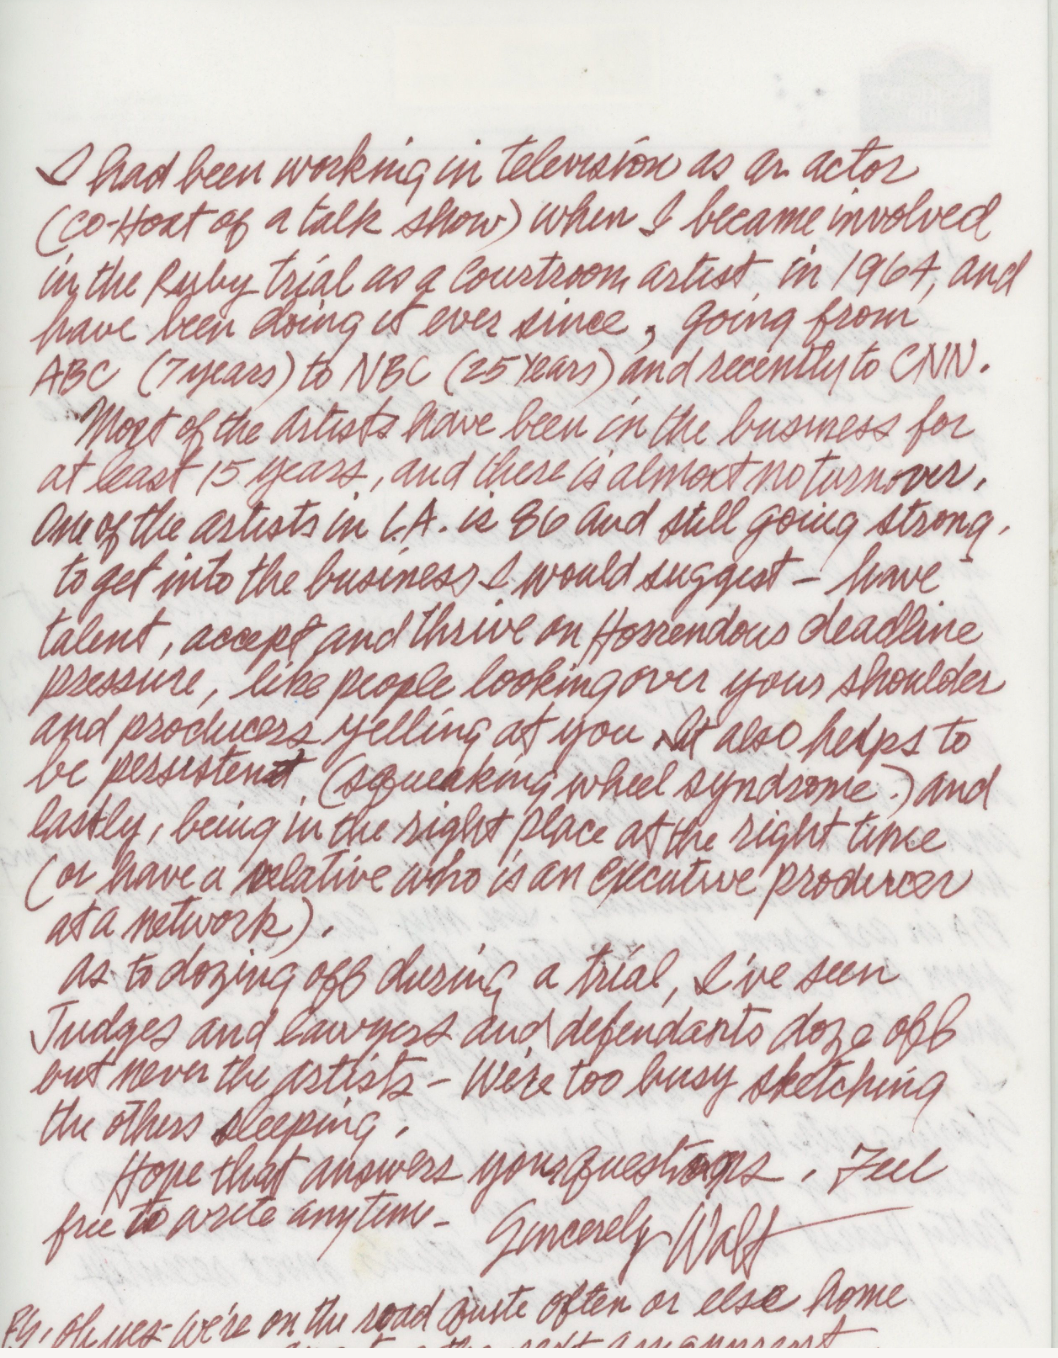 I had been working in television as an actor
(co-Host of a talk show) when I became involved
in the Ruby trial as a Courtroom artist in 1964, and
have been doing it ever since, going from
ABC (7 years) to NBC (25 Years) and recently to CNN.
Most of the artists have been in the business for
at least 15 years, and there is almost no turnover.
One of the artists in L.A. is 86 and still going strong.
to get into the business I would suggest - have
talent, accept and thrive on Horrendous deadline
pressure, like people looking over your shoulder
and producers yelling at you. It also helps to
be persistent (squeaking wheel syndrome.) and
lastly, being in the right place at the right time
(or have a relative who is an executive producer
at a network).
As to dozing off during a trial, I've seen
Judges and lawyers and defendants doze off
but never the artists - We're too busy sketching
the others sleeping.
Hope that answers your questions. Feel
free to write anytime -
Sincerely Walt
P.S. oh yes - We're on the road quite often or else home